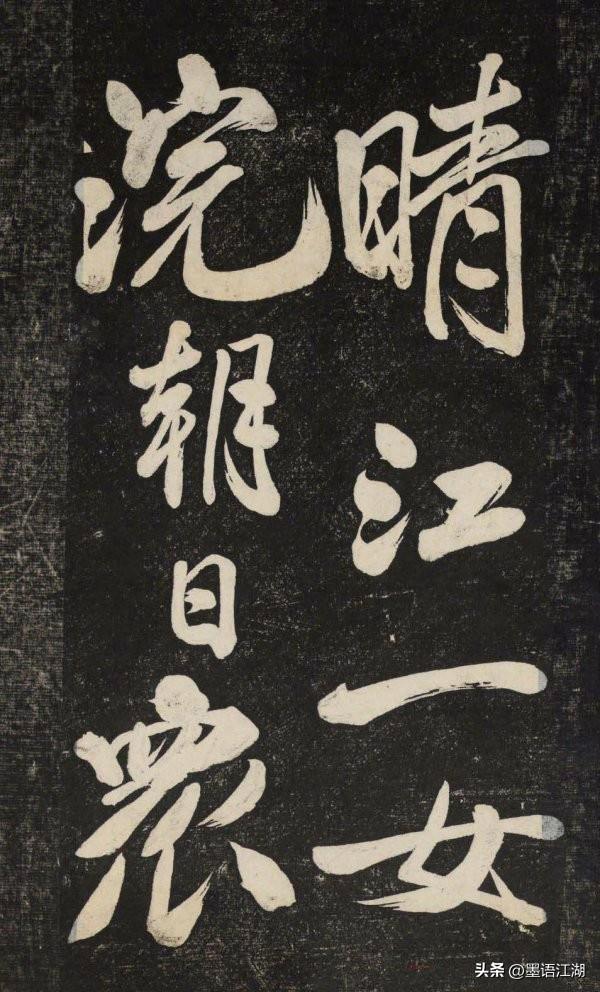 晴江一女
浣朝日眾
头条 @墨语江湖